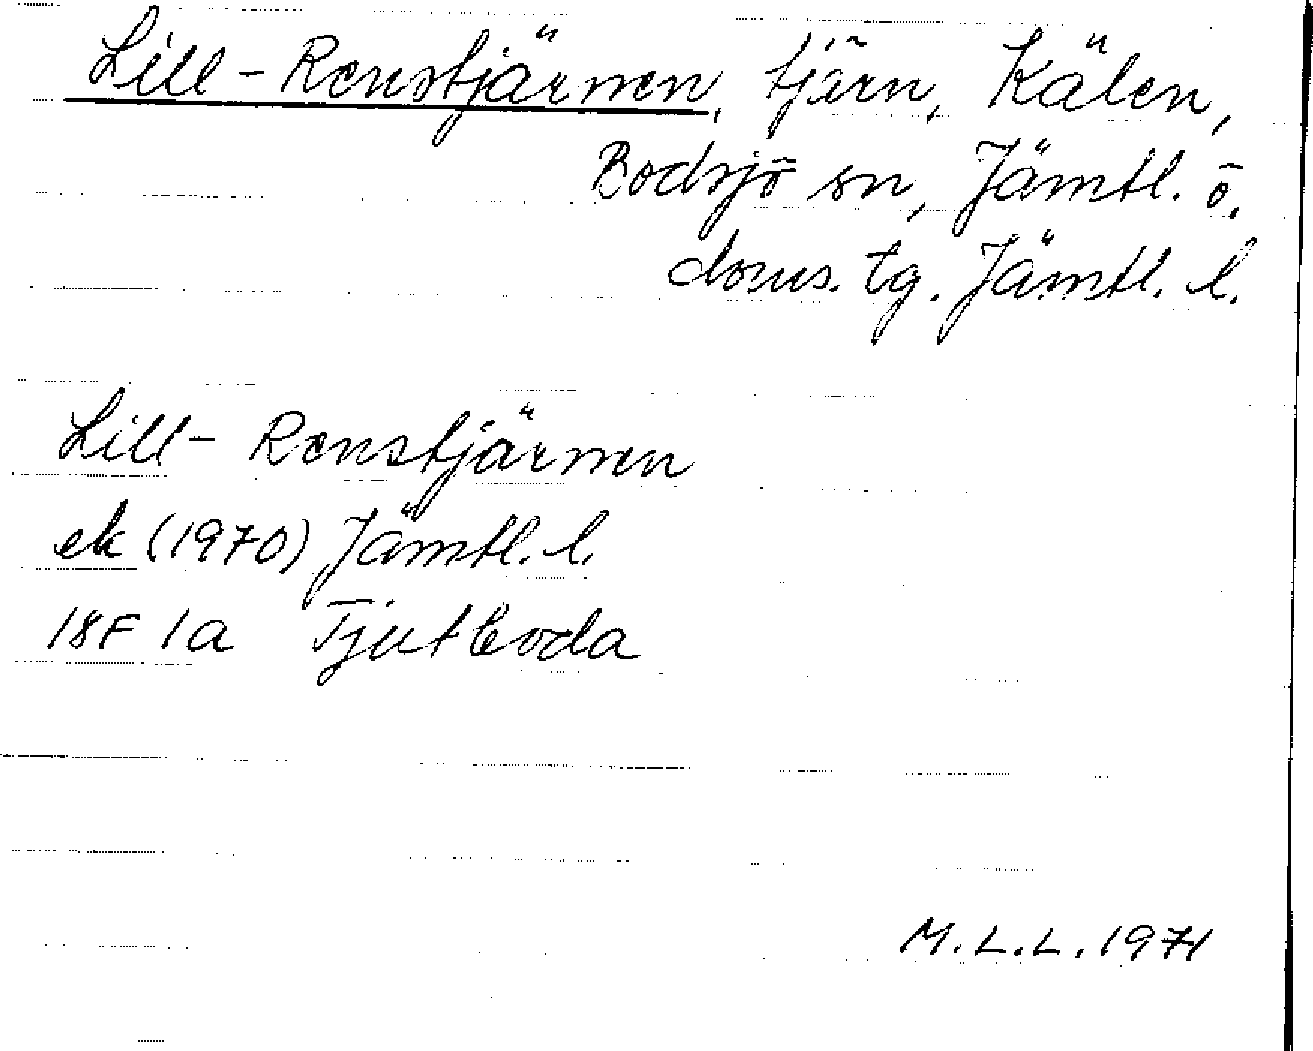 Lill-Renstjärnen, tjärn, Kälen,
Bodsjö sn, Jämtl. ö.
doms. tg. Jämtl. l.
Lill-Renstjärnen
ek (1970) Jämtl. l.
18F 1a Tjutboda
M.L.L. 1971